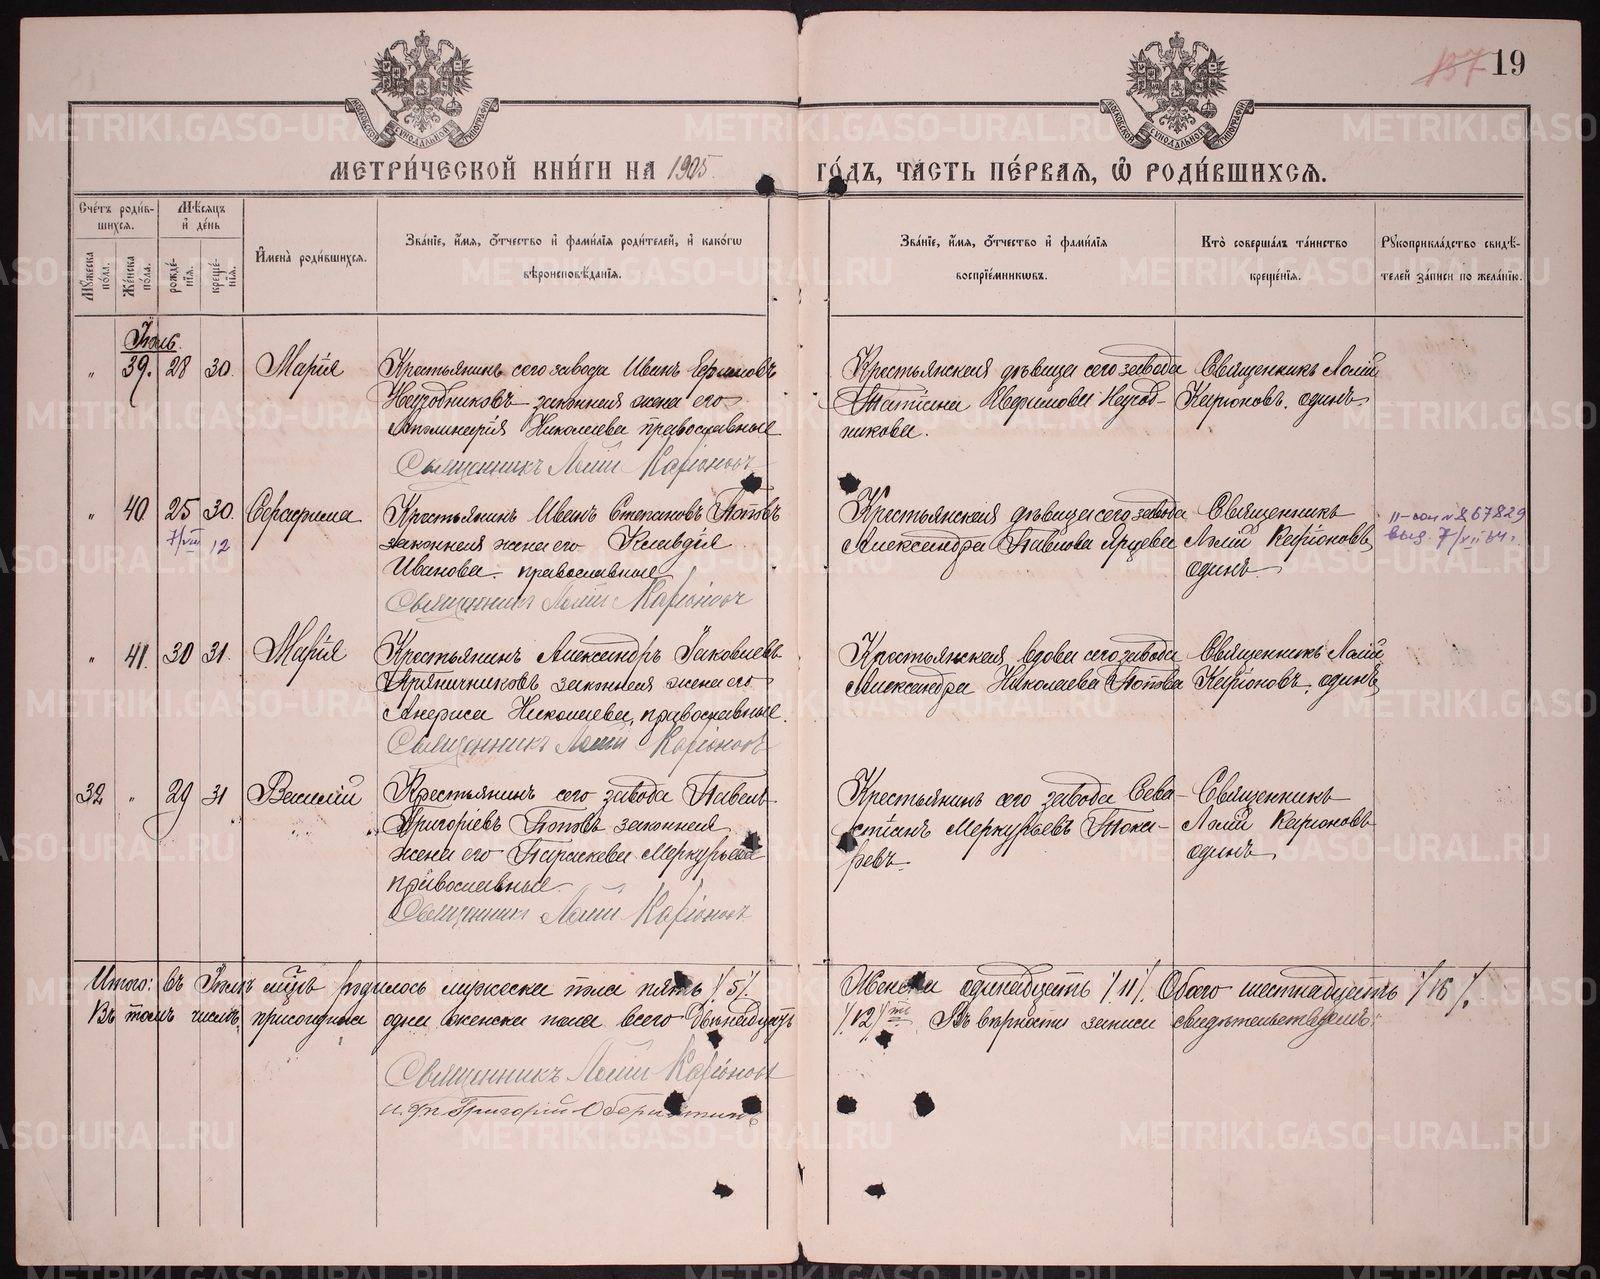 137 19
МОСКОВСКОЙ СУНОДАЛЬНОЙ ТИПОГРАФІИ
МОСКОВСКОЙ СУНОДАЛЬНОЙ ТИПОГРАФІИ
МЕТРИ́ЧЕСКОЙ КНИ́ГИ НА 1905 ГО́ДЪ, ЧАСТЬ ПЕ́РВАЯ, Ѡ РОДИ́ВШИХСЯ.
Сче́тъ роди́в-
шихся.
Му́жеска по́ла.
Же́нска по́ла.
Мѣ́сяцъ
и҆ де́нь
рожде́-
нія.
креще́-
нія.
И҆мена̀ роди́вшихся.
Зва́ніе, и҆́мя, ѻ҆́тчество и҆ фами́лія роди́телей, и҆ како́гѡ
вѣроисповѣ́данія.
Зва́ніе, и҆́мя, ѻ҆́тчество и҆ фами́лія
воспріе́мниковъ.
Кто̀ соверша́лъ та́инство
креще́нія.
Рукоприкла́дство свидѣ́-
телей за́писи по жела́нію.
Іюль.
" 39. 28 30. Марія
Крестьянинъ сего завода Иванъ Ефимовъ
Неугодниковъ законная жена его
Аполинарія Николаева православные
Священникъ Логгинъ Каріоновъ
Крестьянская дѣвица сего завода
Татіана Ефимова Неугод-
никова.
Священникъ
Каріоновъ. одинъ
" 40. 25 30. Серафима
7/VIII 12
Крестьянинъ Иванъ Степановъ Поповъ
законная жена его Клавдія
Иванова. православные
Священникъ Каріоновъ
Крестьянская дѣвица сего завода
Александра Павлова Ярцева
Священникъ
Каріоновъ
одинъ
67829
выд. 7/VII 64 г.
" 41. 30 31. Марія
Крестьянинъ Александръ Іаковлевъ
Пряничниковъ законная жена его
Анфиса Николаева, православные.
Священникъ Каріоновъ
Крестьянская вдова сего завода
Александра Николаева Попова
Священникъ
Каріоновъ. одинъ
32 " 29 31 Василій
Крестьянинъ сего завода Павелъ
Григорьевъ Поповъ законная
жена его Параскева Меркурьева
православные
Священникъ Каріоновъ
Крестьянинъ сего завода Сева-
стіанъ Меркурьевъ Тока-
ревъ.
Священникъ
Каріоновъ
одинъ
Итого: въ Іюлѣ мцѣ родилось мужеска пола пять /5/. Женска одинадцать /11/. Обоего шестнадцать /16/.
Въ томъ числѣ, одна женска пола всего двѣнадцать /12/ Въ вѣрности записи свидѣтельствуемъ:
Священникъ Каріоновъ
и. д. п. Григорій
METRIKI.GASO-URAL.RU